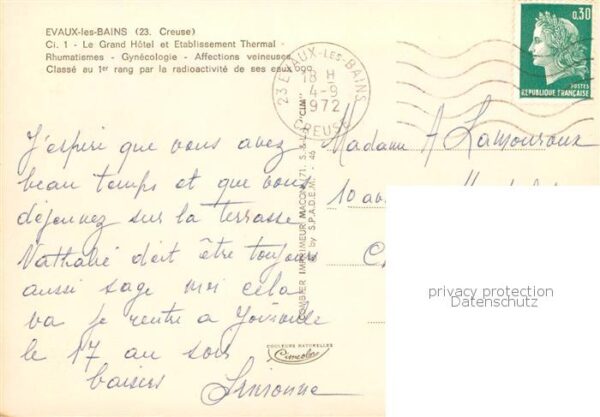 EVAUX-les-BAINS (23. Creuse)
Ci. 1 - Le Grand Hôtel et Etablissement Thermal -
Rhumatismes - Gynécologie - Affections veineuses
Classé au 1er rang par la radioactivité de ses eaux 60º
23 EVAUX-LES-BAINS
18 H
4-9
1972
CREUSE
0,30
POSTES
REPUBLIQUE FRANÇAISE
J'espère que vous avez
beau temps et que vous
déjeunez sur la terrasse
Nathalie doit être toujours
aussi sage moi cela
va je rentre a Joinville
le 17 au soir
baisers Simonne
COMBIER IMPRIMEUR MACON (71. S.-&-L.) "CIM"
© by S.P.A.D.E.M. - 46
COULEURS NATURELLES
Cimcolor
Madame A Lamouroux
10 av
privacy protection
Datenschutz